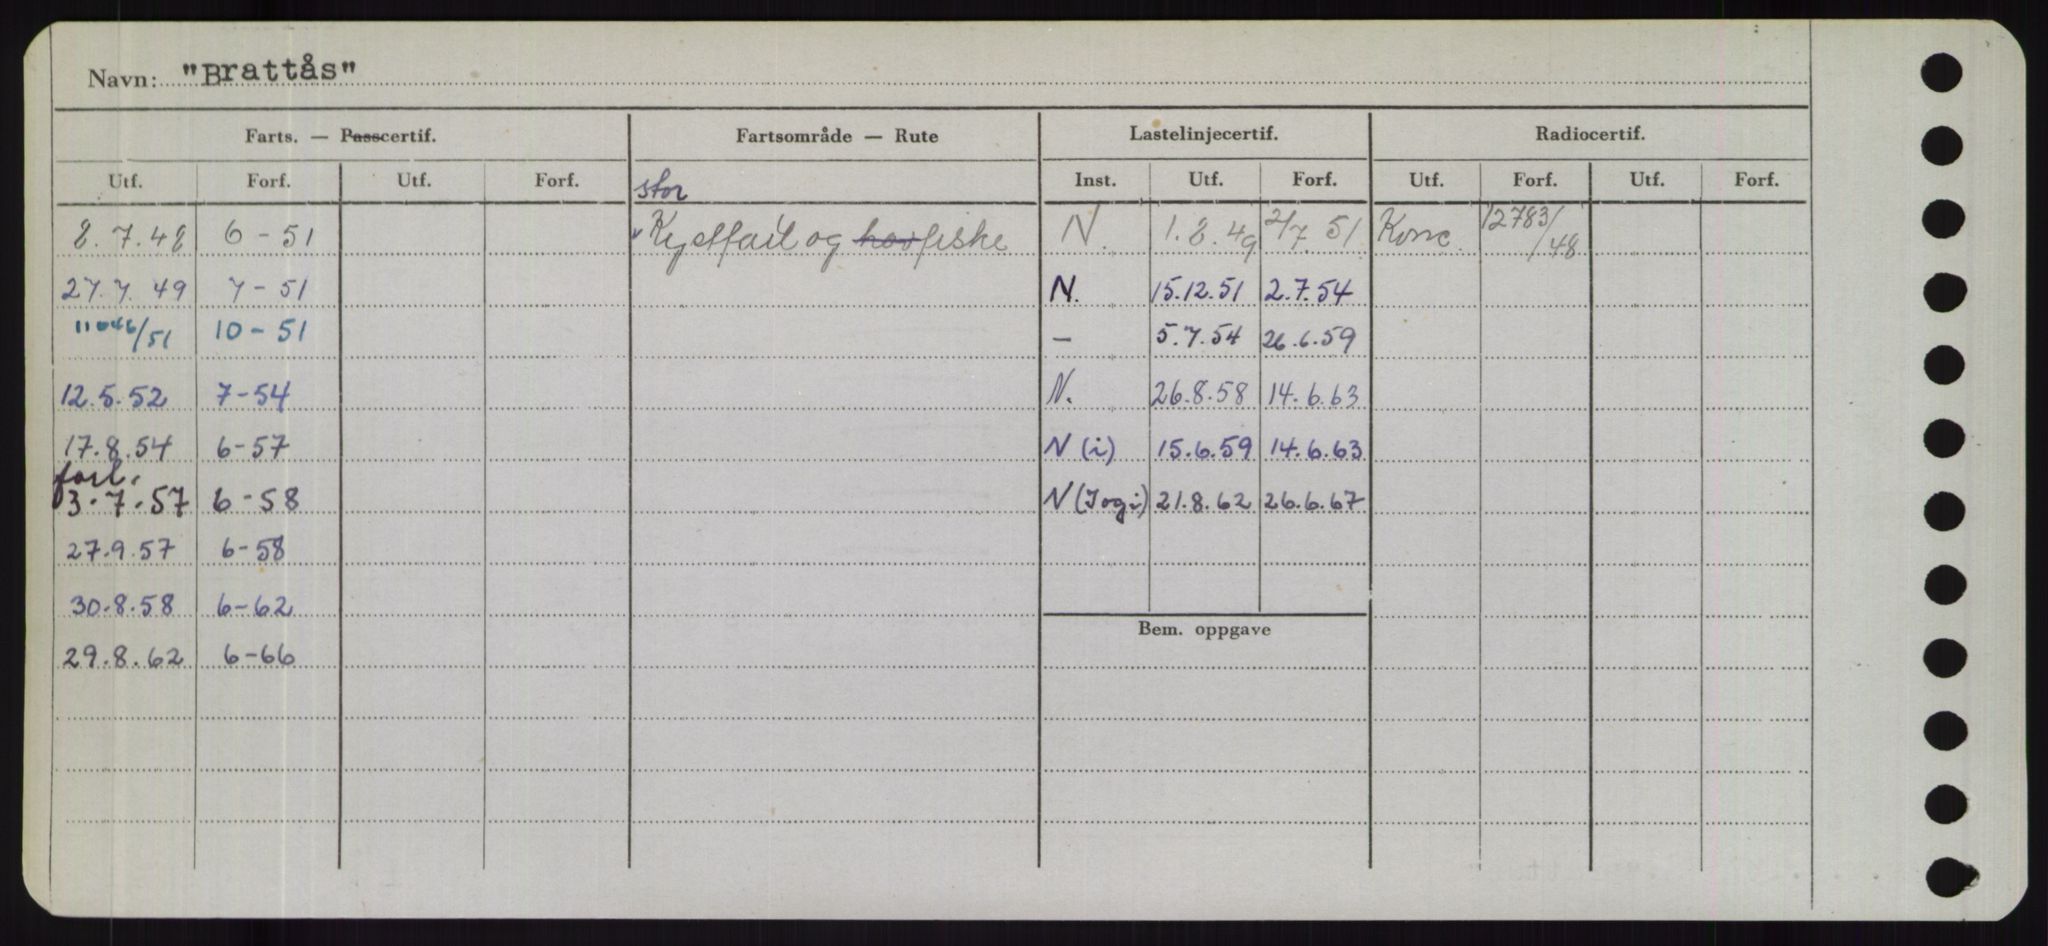 Navn: "Brattås"
Farts. — Passcertif. Fartsområde — Rute Lastelinjecertif. Radiocertif.
Utf. Forf. Utf. Forf. stor Inst. Utf. Forf. Utf. Forf. Utf. Forf.
8.7.48 6-51 Kystfart og havfiske N. 1.8.49 2/7 51 Konc. 12783/48
27.7.49 7-51 N. 15.12.51 2.7.54
11046/51 10-51 — 5.7.54 26.6.59
12.5.52 7-54 N. 26.8.58 14.6.63
17.8.54 6-57 N (i) 15.6.59 14.6.63
forl.
3.7.57 6-58 N (I og i) 21.8.62 26.6.67
27.9.57 6-58
30.8.58 6-62
Bem. oppgave
29.8.62 6-66